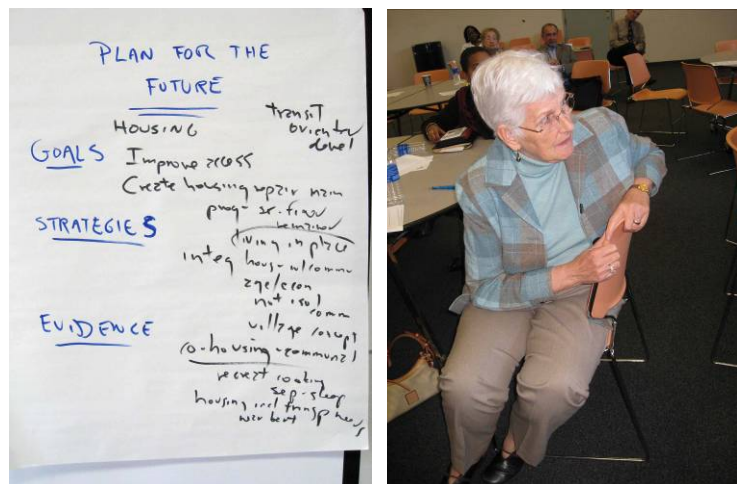 PLAN FOR THE
FUTURE
HOUSING
transit
oriented
devel
GOALS
Improve access
Create housing repair main
prog-
STRATEGIES
living in place
integ hous-w/commu
age/econ
not isol
comm
village concept
co-housing-communal
EVIDENCE
sep-sleep
housing incl transp needs